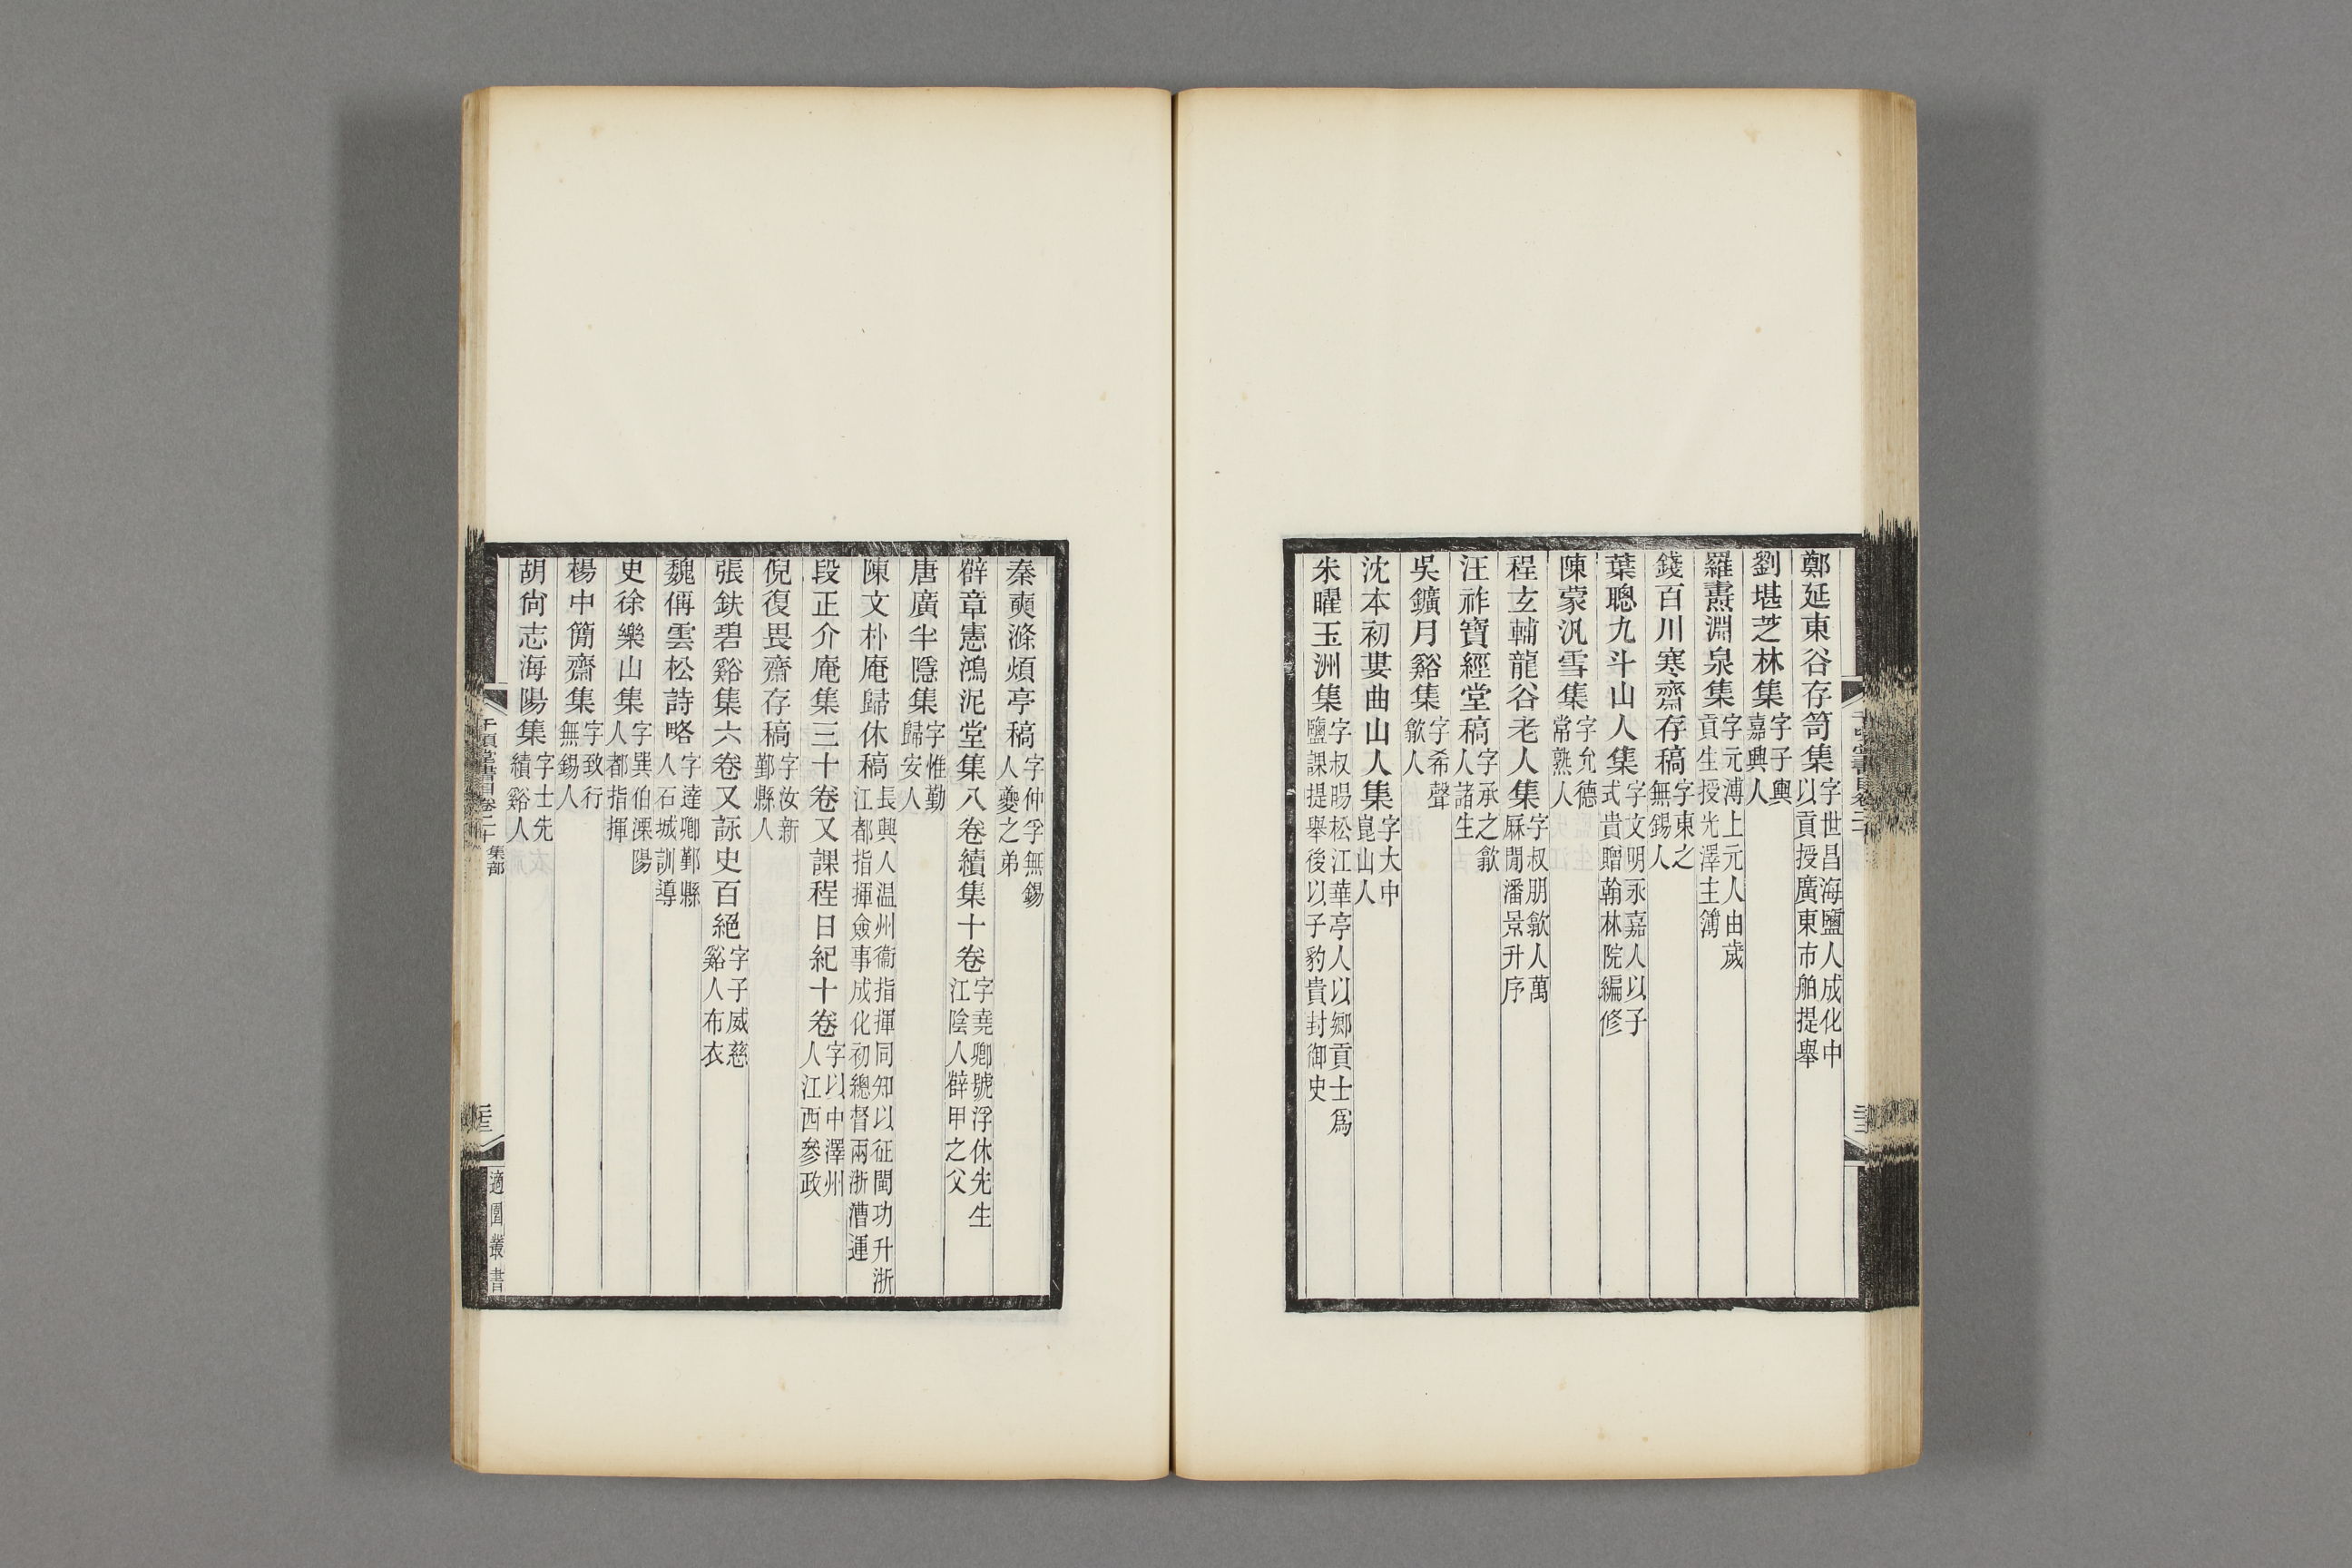 鄭延東谷存笥集字世昌海鹽人成化中以貢授廣東市舶提舉
劉堪芝林集字子輿嘉興人
羅燾淵泉集字元溥上元人由歲貢生授光澤主簿
錢百川寒齋存稿字東之無錫人
葉聰九斗山人集字文明永嘉人以子式貴贈翰林院編修
陳蒙汎雪集字允德常熟人
程玄輔龍谷老人集字叔朋歙人萬厤閒潘景升序
汪祚寶經堂稿字承之歙人諸生
吳鑛月谿集字希聲歙人
沈本初婁曲山人集字大中崑山人
朱曜玉洲集字叔暘松江華亭人以鄉貢士爲鹽課提舉後以子豹貴封御史
秦奭滌煩亭稿字仲孚無錫人夔之弟
薛章憲鴻泥堂集八卷續集十卷字堯卿號浮休先生江陰人薛甲之父
唐廣半隱集字惟勤歸安人
陳文朴庵歸休稿長興人温州衞指揮同知以征閩功升浙江都指揮僉事成化初總督兩浙漕運
段正介庵集三十卷又課程日紀十卷字以中澤州人江西參政
倪復畏齋存稿字汝新鄞縣人
張鈇碧谿集六卷又詠史百絕字子威慈谿人布衣
魏偁雲松詩略字達卿鄞縣人石城訓導
史徐樂山集字巽伯溧陽人都指揮
楊中簡齋集字致行無錫人
胡尙志海陽集字士先績谿人
千頃堂書目卷二十 集部
適園叢書